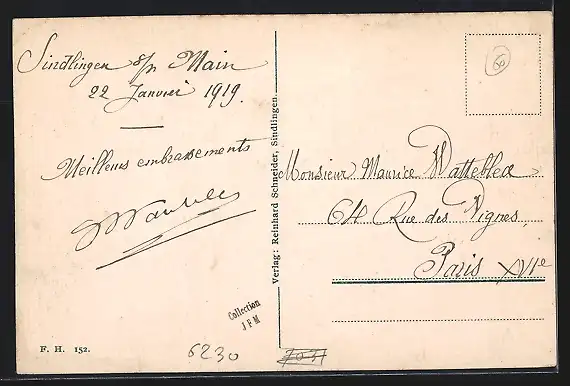 Sindlingen s/m Main
22 Janvier 1919.
Meilleurs embrassements
Verlag: Reinhard Schneider, Sindlingen.
Monsieur Maurice Wattebled
64 Rue des Vignes,
Paris XVIe
Collection
JFM
F. H. 152.
6230